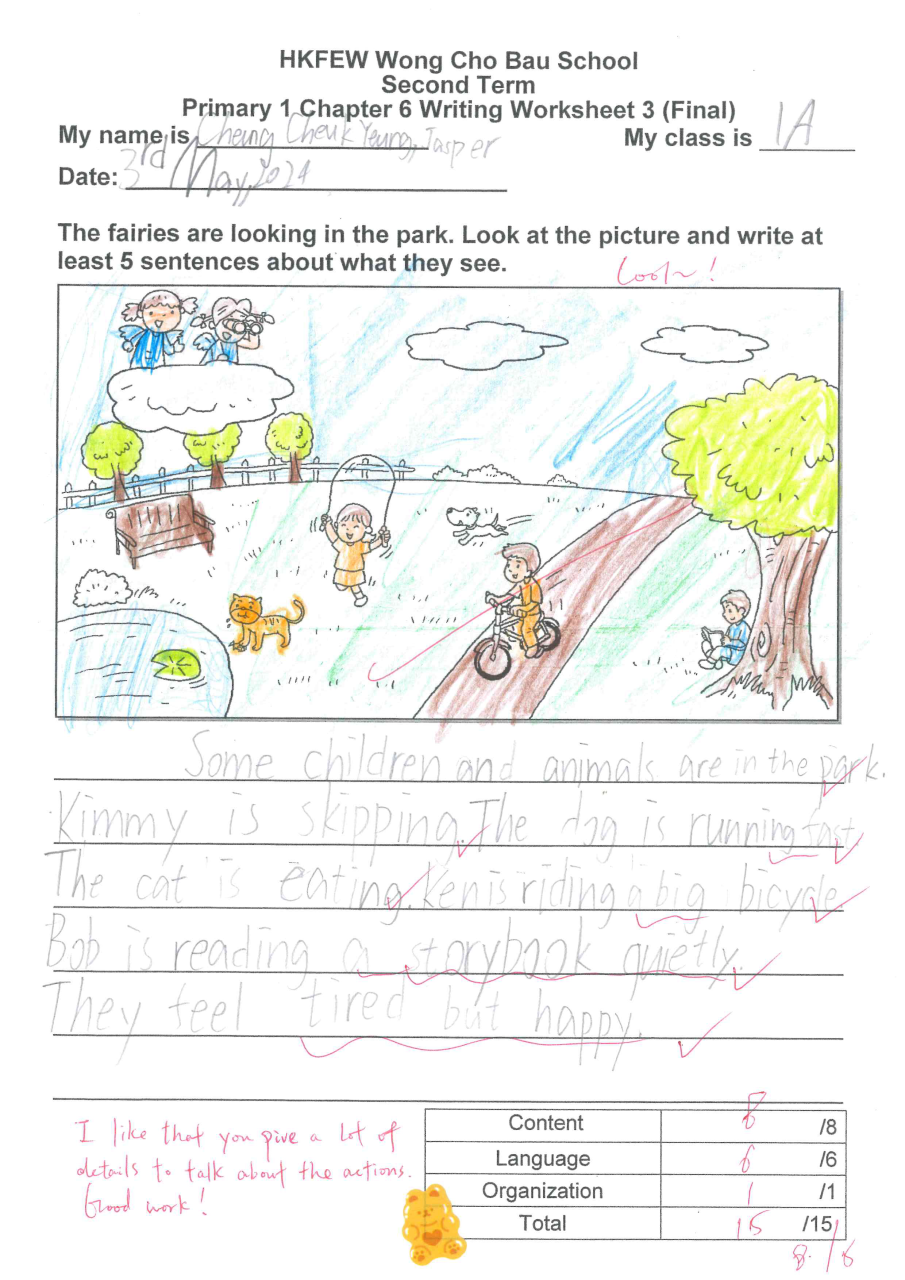 HKFEW Wong Cho Bau School
Second Term
Primary 1 Chapter 6 Writing Worksheet 3 (Final)
My name is Cheung Cheuk Yeung, Jasper My class is 1A
Date: 3rd May, 2024
The fairies are looking in the park. Look at the picture and write at
least 5 sentences about what they see.
Some children and animals are in the park.
Kimmy is skipping. The dog is running fast.
The cat is eating. Ken is riding a big bicycle.
Bob is reading a storybook quietly.
They feel tired but happy.
I like that you give a lot of
details to talk about the actions.
Good work!
Content 8 /8
Language 6 /6
Organization 1 /1
Total 15 /15